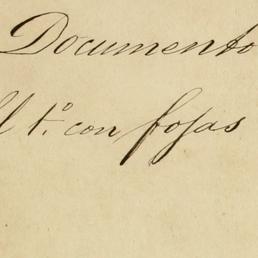 Documento
1º. con fojas